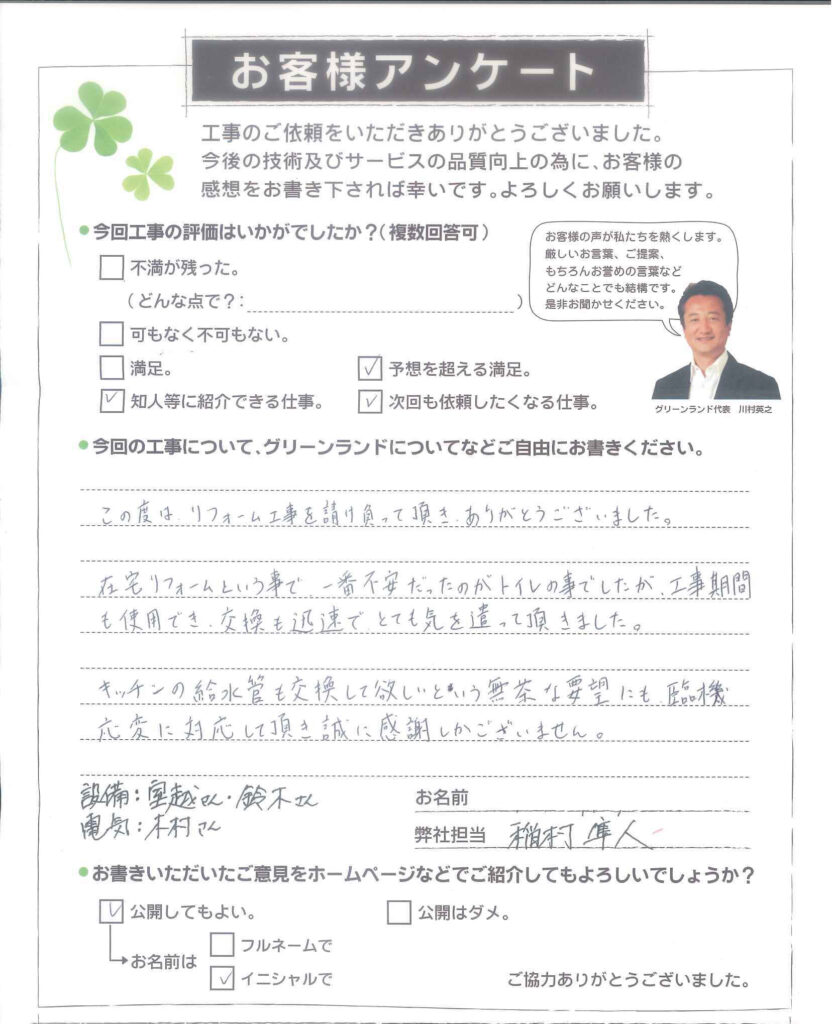 お客様アンケート
工事のご依頼をいただきありがとうございました。
今後の技術及びサービスの品質向上の為に、お客様の
感想をお書き下されば幸いです。よろしくお願いします。
今回工事の評価はいかがでしたか?(複数回答可)
不満が残った。
(どんな点で?: )
可もなく不可もない。
満足。
予想を超える満足。
知人等に紹介できる仕事。
次回も依頼したくなる仕事。
お客様の声が私たちを熱くします。
厳しいお言葉、ご提案、
もちろんお誉めの言葉など
どんなことでも結構です。
是非お聞かせください。
グリーンランド代表 川村英之
今回の工事について、グリーンランドについてなどご自由にお書きください。
この度は、リフォーム工事を請け負って頂き、ありがとうございました。
在宅リフォームという事で、一番不安だったのがトイレの事でしたが、工事期間
も使用でき、交換も迅速で、とても気を遣って頂きました。
キッチンの給水管も交換して欲しいという無茶な要望にも、臨機
応変に対応して頂き誠に感謝しかございません。
設備:室越さん・鈴木さん
電気:木村さん
お名前
弊社担当 稲村 隼人
お書きいただいたご意見をホームページなどでご紹介してもよろしいでしょうか?
公開してもよい。
公開はダメ。
お名前は
フルネームで
イニシャルで
ご協力ありがとうございました。